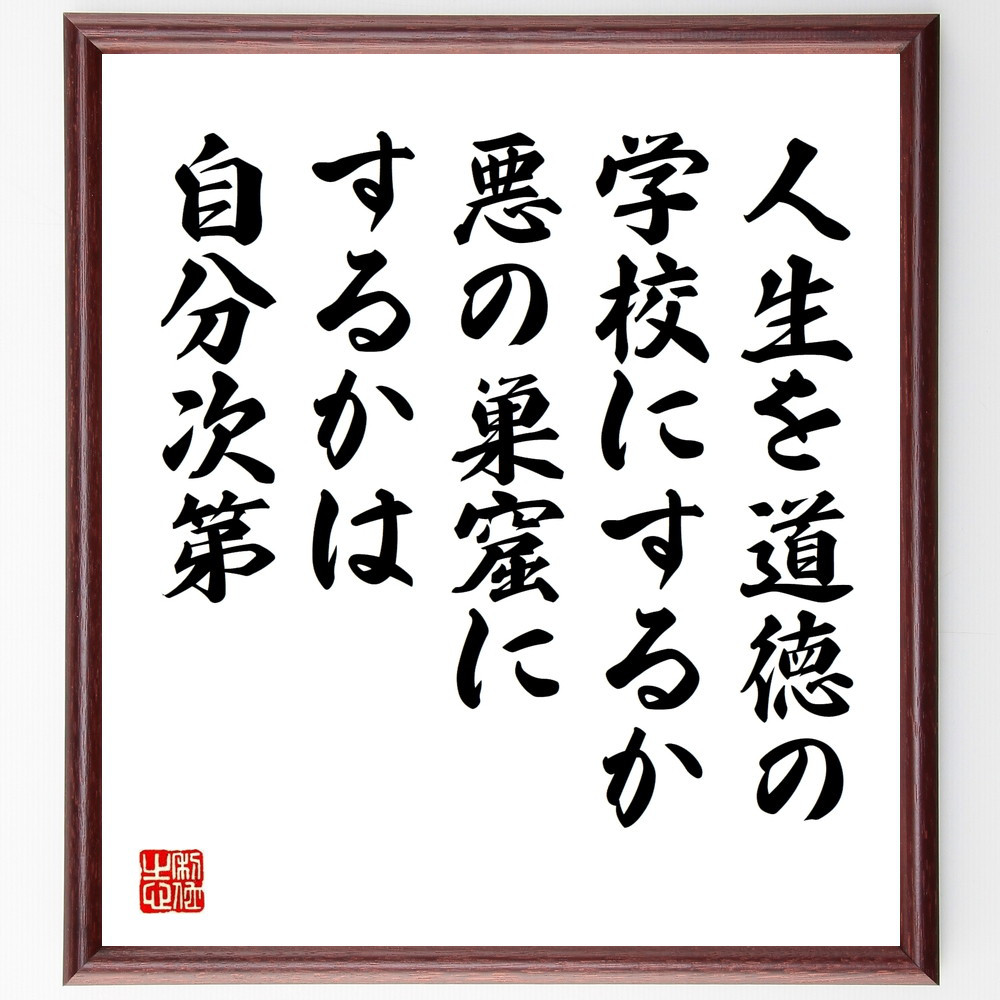 人生を道徳の
学校にするか
悪の巣窟に
するかは
自分次第